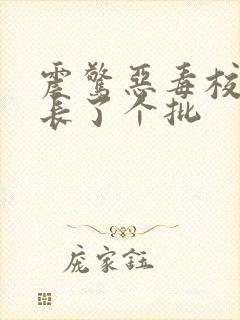 震惊恶毒校
长了个批
庞家钰